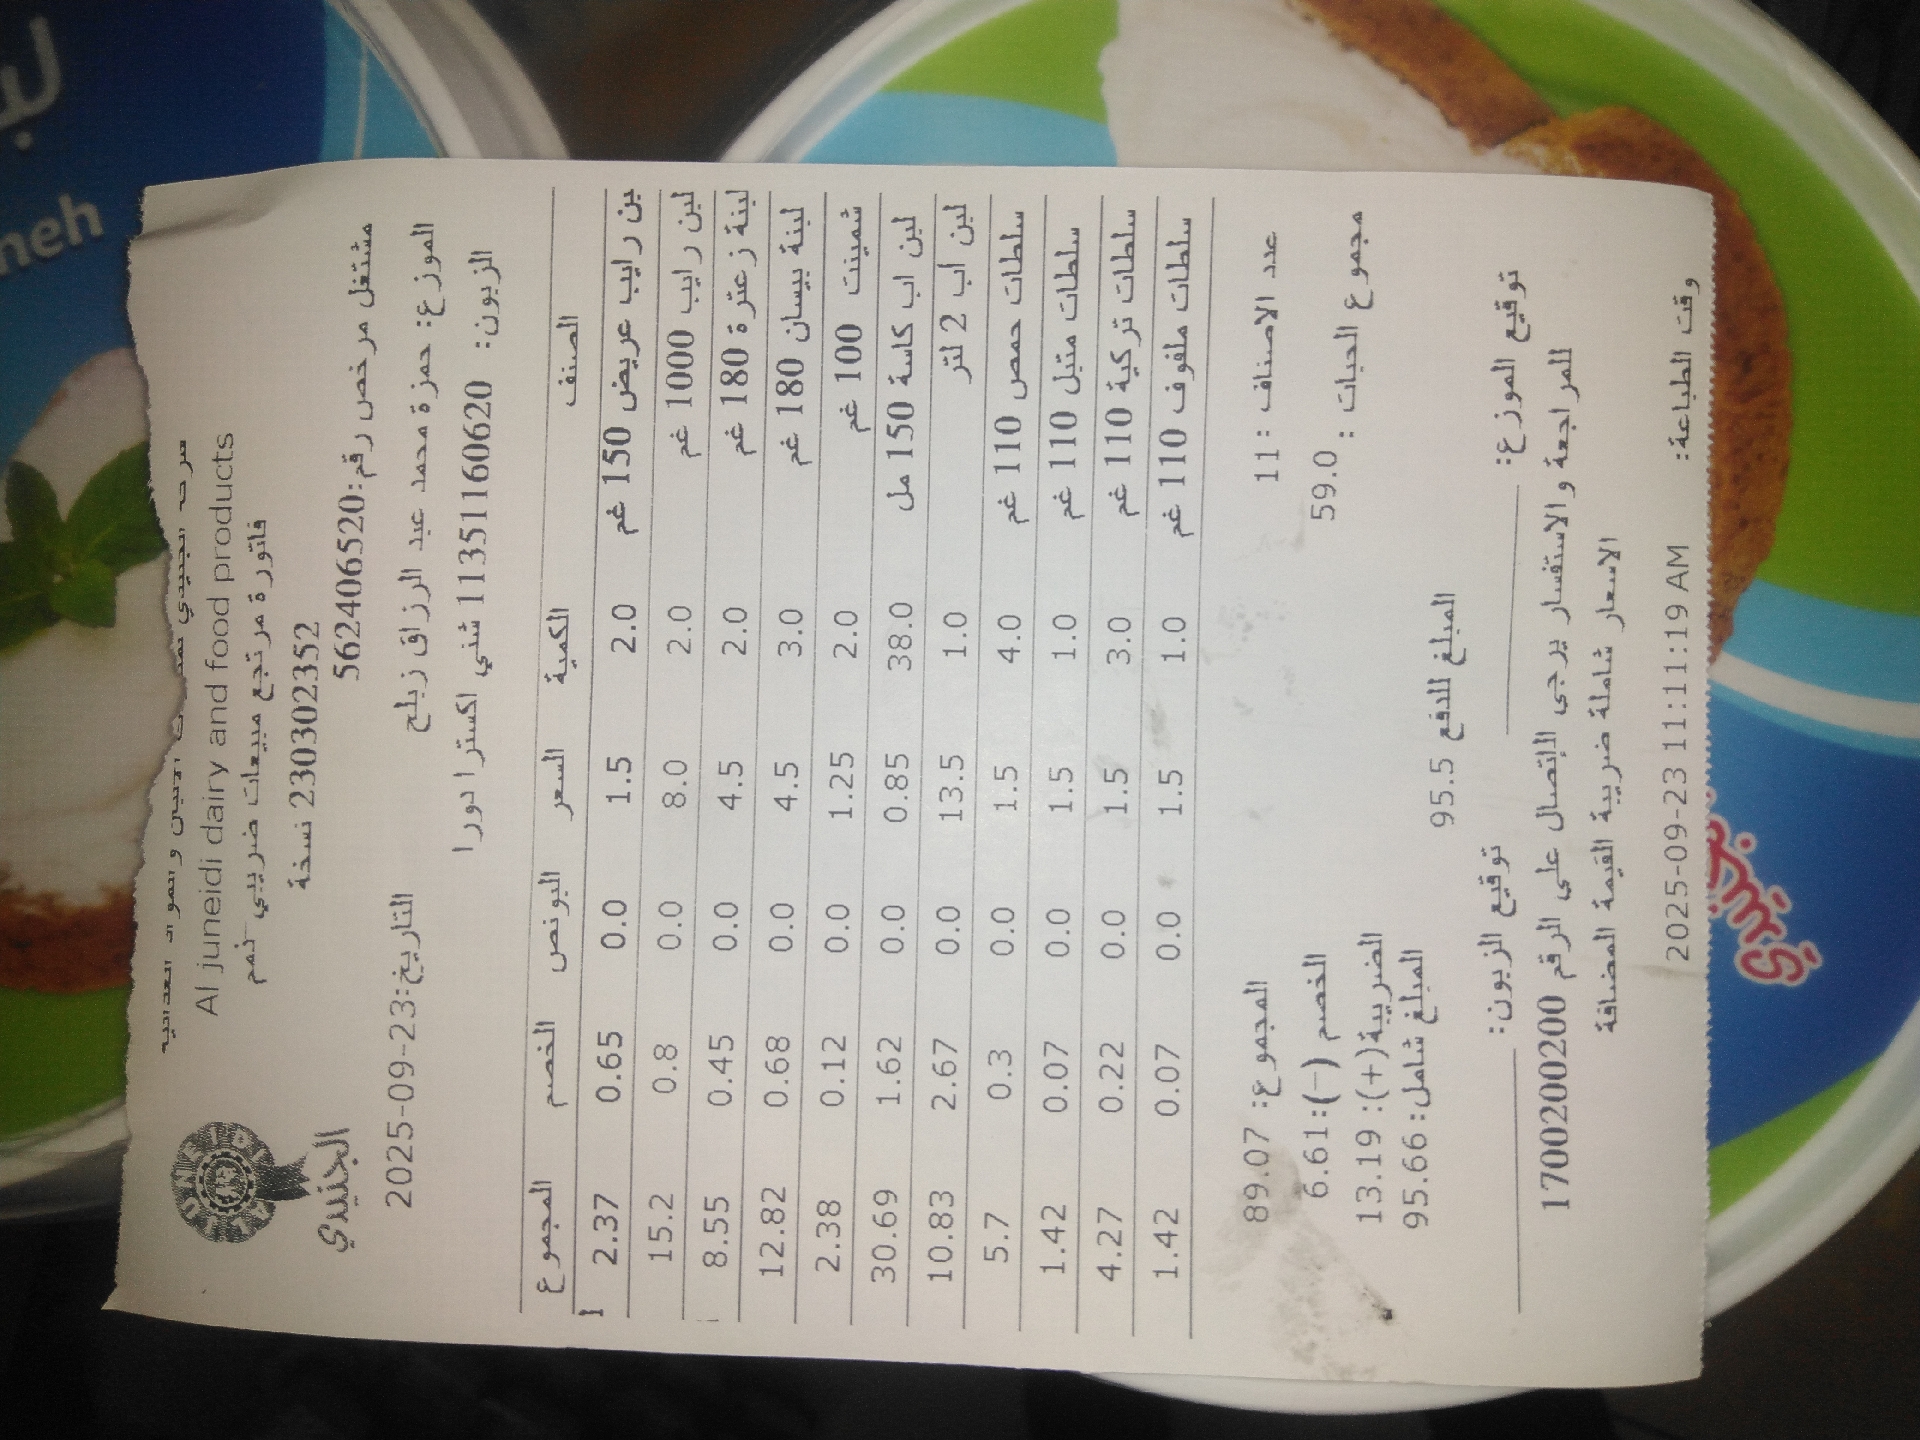 شركة الجنيدي لمنتجات الالبان والمواد الغذائية
Al juneidi dairy and food products
فاتورة مرتجع مبيعات ضريبي نعم
230302352 نسخة
مشتغل مرخص رقم:562406520
الجنيدي
الموزع: حمزة محمد عبد الرزاق زبلح
التاريخ:2025-09-23
الزبون: 11351160620 شني اكسترا دورا
الصنف الكمية السعر البونص الخصم المجموع
بن رايب عريض 150 غم 2.0 1.5 0.0 0.65 2.37
لبن رايب 1000 غم 2.0 8.0 0.0 0.8 15.2
لبنة زعترة 180 غم 2.0 4.5 0.0 0.45 8.55
لبنة بيسان 180 غم 3.0 4.5 0.0 0.68 12.82
شمينت 100 غم 2.0 1.25 0.0 0.12 2.38
لبن اب كاسة 150 مل 38.0 0.85 0.0 1.62 30.69
لبن اب 2 لتر 1.0 13.5 0.0 2.67 10.83
سلطات حمص 110 غم 4.0 1.5 0.0 0.3 5.7
سلطات متبل 110 غم 1.0 1.5 0.0 0.07 1.42
سلطات تركية 110 غم 3.0 1.5 0.0 0.22 4.27
سلطات ملفوف 110 غم 1.0 1.5 0.0 0.07 1.42
عدد الاصناف : 11 المجموع: 89.07
مجموع الحبات : 59.0 الخصم (-): 6.61
الضريبة(+): 13.19
المبلغ للدفع 95.5 المبلغ شامل: 95.66
توقيع الموزع: توقيع الزبون:
للمراجعة والاستفسار يرجى الإتصال على الرقم 1700200200
الاسعار شاملة ضريبة القيمة المضافة
وقت الطباعة: 2025-09-23 11:11:19 AM
neh